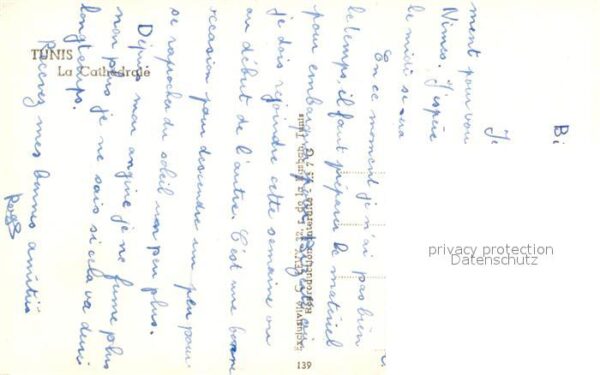 TUNIS
La Cathédrale
Bi
Je
ment pour vou
Nimes. J'espère
le midi se
En ce moment je n'ai pas bien
le temps, il faut préparer le matériel
pour embarquer
je dois rejoindre cette semaine ou
au début de l'autre. C'est une bonne
occasion pour descendre un peu pour
se rapprocher du soleil non plus.
Depuis mon angine je ne fume plus
non plus je ne sais si cela va durer
longtemps.
Recevez mes bonnes amitiés
139
privacy protection
Datenschutz